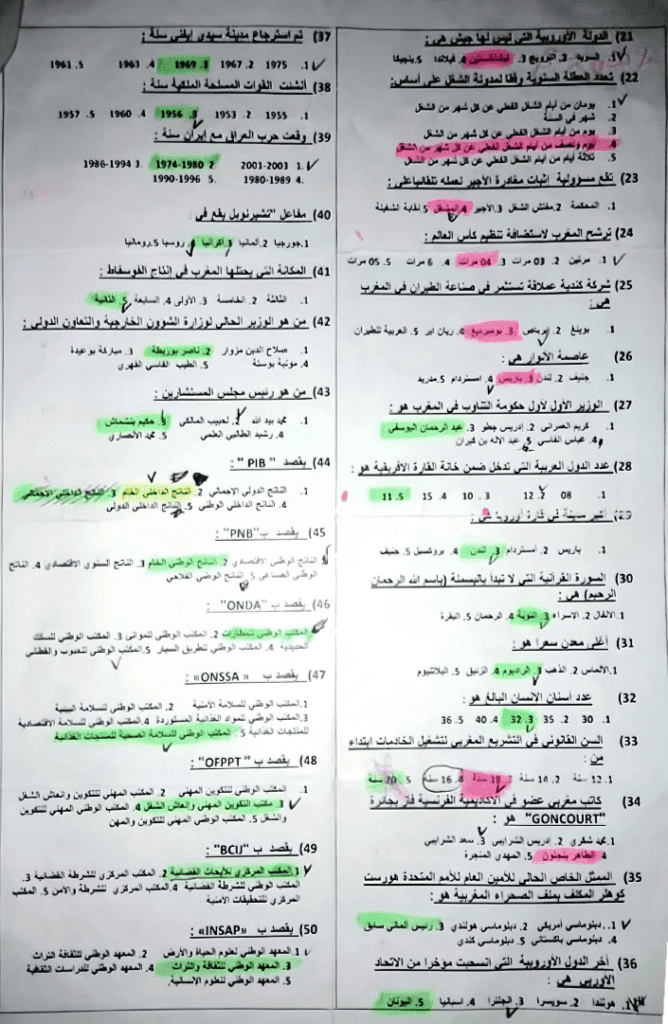 21) الدولة الأوروبية التي ليس لها جيش هي :
1. السويد 2. النرويج 3. ليشتنشتاين 4. فنلندا 5. بلجيكا
22) تحدد العطلة السنوية وفقا لمدونة الشغل على أساس:
1. يومان من أيام الشغل الفعلي عن كل شهر من الشغل
2. شهر في السنة
3. يوم من أيام الشغل الفعلي عن كل شهر من الشغل
4. يوم ونصف من أيام الشغل الفعلي عن كل شهر من الشغل
5. ثلاثة أيام من أيام الشغل الفعلي عن كل شهر من الشغل
23) تقع مسؤولية إثبات مغادرة الأجير لعمله تلقائيا على :
1. المحكمة 2. مفتش الشغل 3. الأجير 4. المشغل 5. نقابة الشغيلة
24) ترشح المغرب لاستضافة تنظيم كأس العالم :
1. مرتين 2. 03 مرات 3. 04 مرات 4. 6 مرات 5. 05 مرات
25) شركة كندية عملاقة تستثمر في صناعة الطيران في المغرب
هي :
1. بوينغ 2. ايرباص 3. بومبرديي 4. ريان اير 5. العربية للطيران
26) عاصمة الأنوار هي :
1. جنيف 2. لندن 3. باريس 4. امستردام 5. مدريد
27) الوزير الأول لأول حكومة التناوب في المغرب هو :
1. كريم العمراني 2. إدريس جطو 3. عبد الرحمان اليوسفي
4. عباس الفاسي 5. عبد الاله بن كيران
28) عدد الدول العربية التي تدخل ضمن خانة القارة الأفريقية هو :
1. 08 2. 12 3. 10 4. 15 5. 11
29) أكبر مدينة في قارة أوروبا هي :
1. باريس 2. أمستردام 3. لندن 4. بروكسيل 5. جنيف
30) السورة القرآنية التي لا تبدأ بالبسملة (باسم الله الرحمان
الرحيم) هي :
1.الانفال 2. الاسراء 3. التوبة 4. الرحمان 5. البقرة
31) أغلى معدن سعرا هو :
1.الالماس 2. الذهب 3. الراديوم 4. الزئبق 5. البلاتنيوم
32) عدد أسنان الانسان البالغ هو :
1. 30 2. 35 3. 32 4. 40 5. 36
33) السن القانوني في التشريع المغربي لتشغيل الخادمات ابتداء
من :
1. 12 سنة 2. 14 سنة 3. 18 سنة 4. 16 سنة 5. 20 سنة
34) كاتب مغربي عضو في الأكاديمية الفرنسية فاز بجائزة
"GONCOURT" هو :
1.محمد شكري 2. إدريس الشرايبي 3. سعد الشرايبي
4. الطاهر بنجلون 5. المهدي المنجرة
35) الممثل الخاص الحالي للأمين العام للأمم المتحدة هورست
كوهلر المكلف بملف الصحراء المغربية هو:
1. دبلوماسي أمريكي 2. دبلوماسي هولندي 3. رئيس ألماني سابق
4. دبلوماسي باكستاني 5. دبلوماسي كندي
36) أخر الدول الأوروبية التي انسحبت مؤخرا من الاتحاد
الأوربي هي :
1. هولندا 2. سويسرا 3. انجلترا 4. اسبانيا 5. اليونان
37) تم استرجاع مدينة سيدي إيفني سنة :
1. 1975 2. 1967 3. 1969 4. 1963 5. 1961
38) أنشئت القوات المسلحة الملكية سنة :
1. 1955 2. 1953 3. 1956 4. 1960 5. 1957
39) وقعت حرب العراق مع إيران سنة :
1. 2001-2003 2. 1974-1980 3. 1986-1994
4. 1980-1989 5. 1990-1996
40) مفاعل "تشيرنوبل يقع في :
1.جورجيا 2.ألمانيا 3.أكرانيا 4. روسيا 5.رومانيا
41) المكانة التي يحتلها المغرب في إنتاج الفوسفاط :
1. الثالثة 2. الخامسة 3. الأولى 4. السابعة 5. الثانية
42) من هو الوزير الحالي لوزارة الشؤون الخارجية والتعاون الدولي :
1. صلاح الدين مزوار 2. ناصر بوريطة 3. مباركة بوعيدة
4. مونية بوستة 5. الطيب الفاسي الفهري
43) من هو رئيس مجلس المستشارين :
1. محمد بيد الله 2. لحبيب المالكي 3. حكيم بنشماش
4. رشيد الطالبي العلمي 5. محمد الأنصاري
44) يقصد "PIB" :
1. الناتج الدولي الإجمالي 2. الناتج الداخلي الخام 3. الناتج الداخلي الإجمالي
4. الناتج الداخلي الوطني 5. الناتج الداخلي الدولي
45) يقصد ب"PNB":
1. الناتج الوطني الاقتصادي 2. الناتج الوطني الخام 3. الناتج السنوي الاقتصادي 4. الناتج
الوطني الصناعي 5. الناتج الوطني الفلاحي
46) يقصد ب "ONDA":
1. المكتب الوطني للمطارات 2. المكتب الوطني للموانئ 3. المكتب الوطني للسكك
الحديدية 4. المكتب الوطني للطريق السيار 5. المكتب الوطني للحبوب والقطاني
47) يقصد ب «ONSSA»:
1. المكتب الوطني للسلامة الأمنية 2. المكتب الوطني للسلامة البيئية
3. المكتب الوطني للمواد الغذائية المستوردة 4. المكتب الوطني للسلامة الاقتصادية
للمنتجات الغذائية 5. المكتب الوطني للسلامة الصحية للمنتجات الغذائية
48) يقصد ب "OFPPT":
1. المكتب الوطني للتكوين المهني 2. المكتب المهني للتكوين وانعاش الشغل
3. مكتب التكوين المهني وإنعاش الشغل 4. المكتب الوطني المهني للتكوين
والشغل 5. المكتب الوطني المهني للتكوين والمهن
49) يقصد ب "BCIJ":
1. المكتب المركزي للأبحاث القضائية 2. المكتب المركزي للشرطة القضائية 3.
المكتب الوطني للشرطة القضائية 4. المكتب المركزي للشرطة والأمن 5. المكتب
المركزي للتحقيقات الأمنية
50) يقصد ب «INSAP»:
1. المعهد الوطني لعلوم الحياة والأرض 2. المعهد الوطني للثقافة التراث
3. المعهد الوطني للثقافة والتراث 4. المعهد الوطني للدراسات الثقافية
5. المعهد الوطني للعلوم الانسانية.